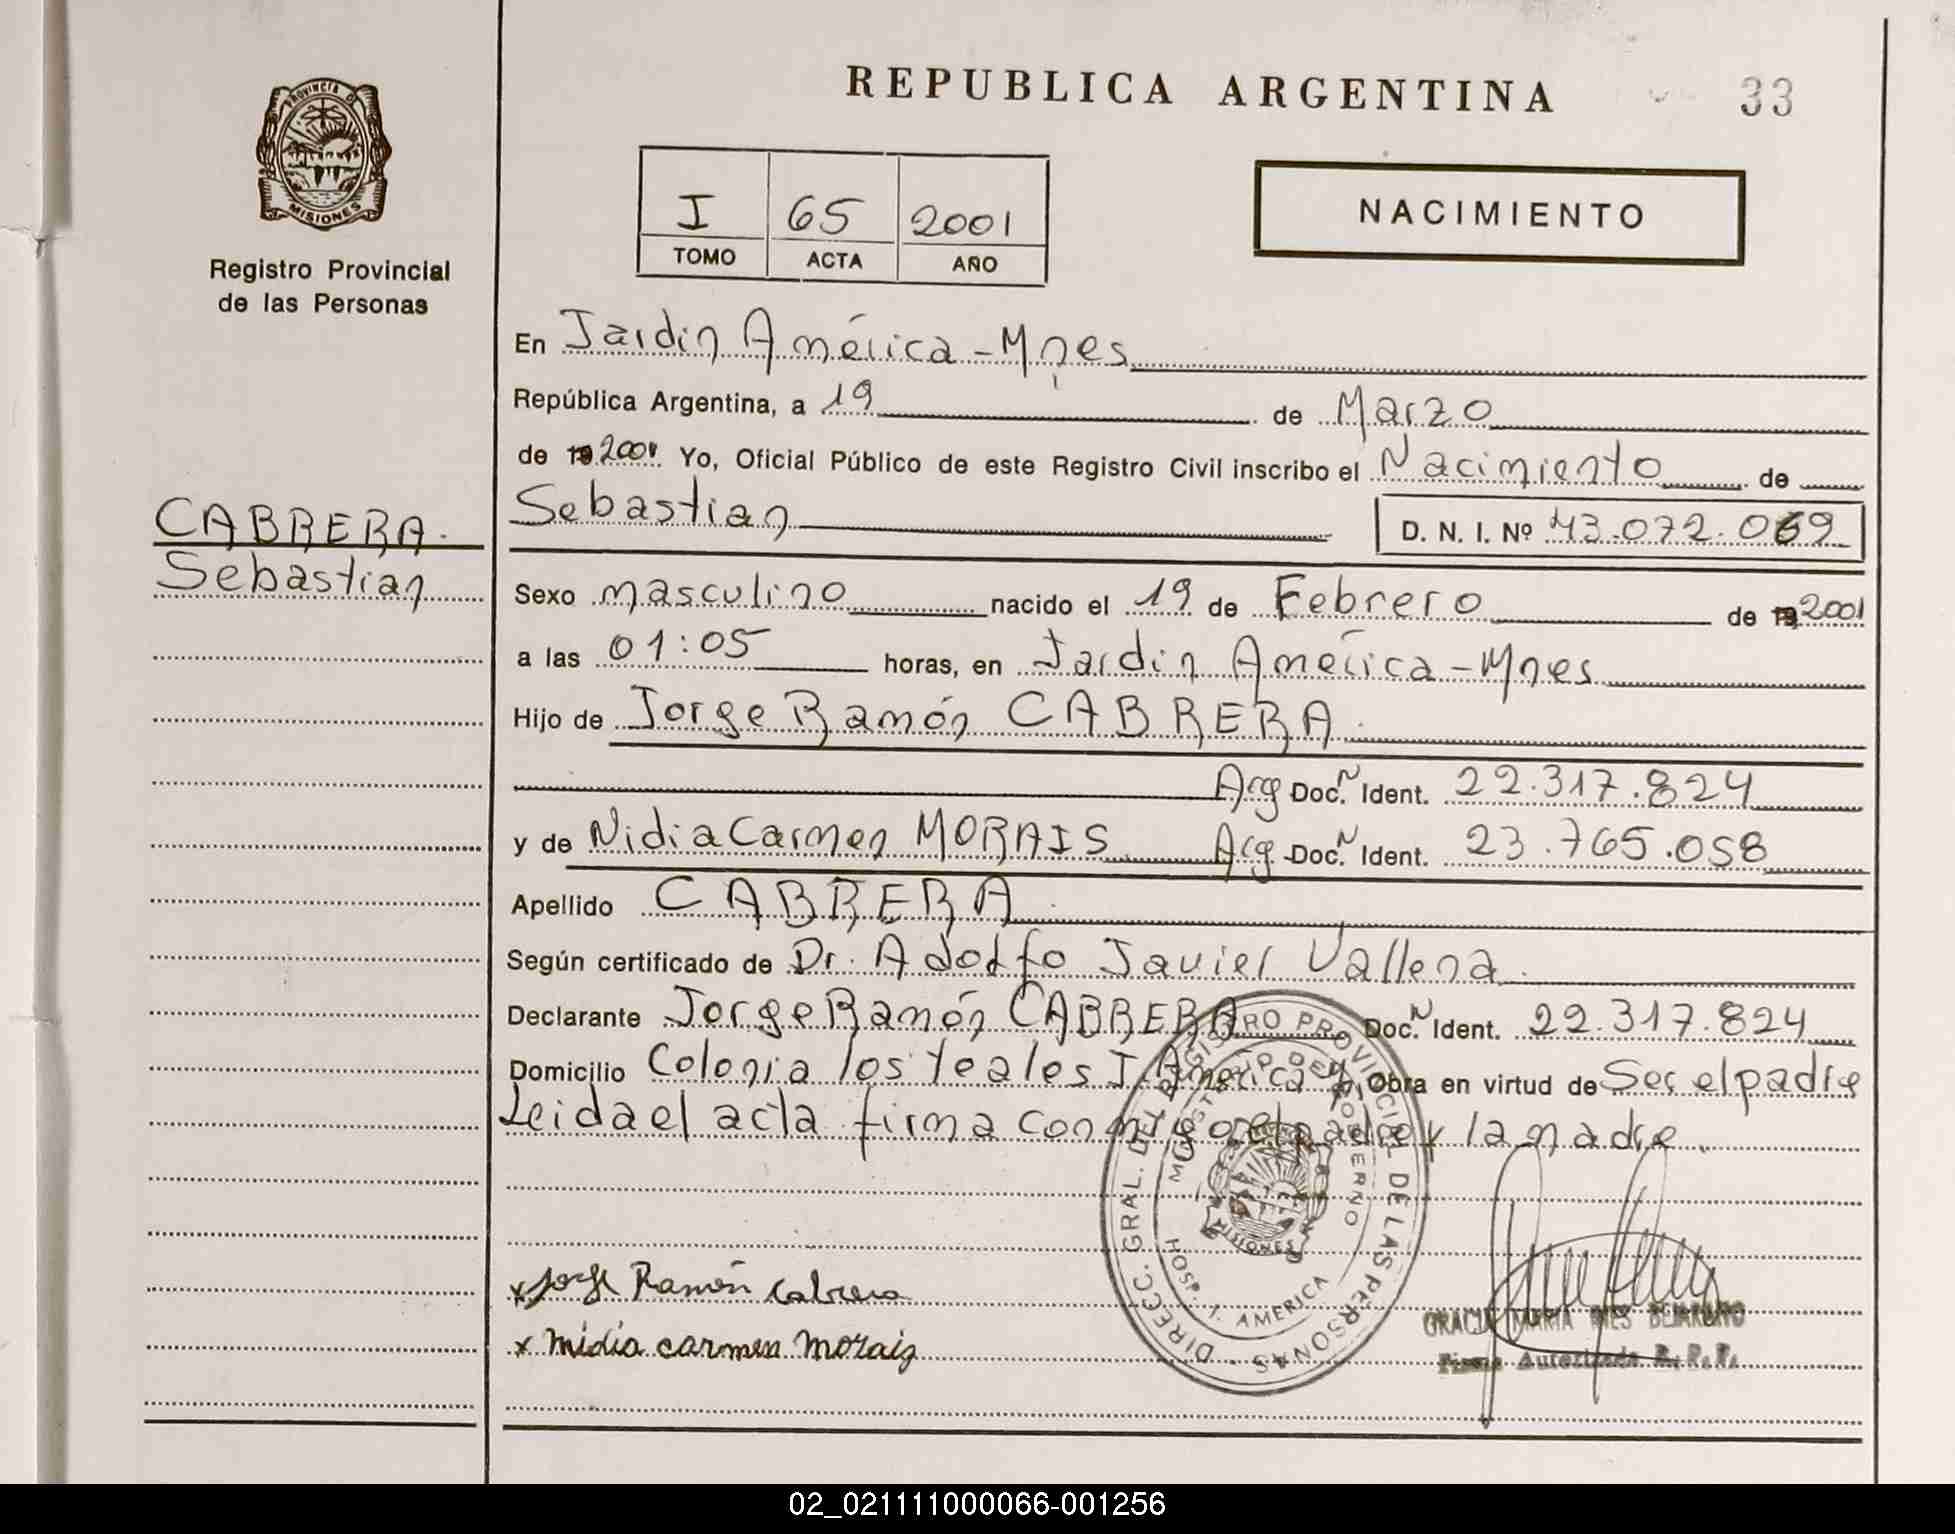 REPUBLICA ARGENTINA 33
PROVINCIA D
MISIONES
Registro Provincial
de las Personas
I 65 2001
TOMO ACTA AÑO
NACIMIENTO
En Jardin América - Mnes
República Argentina, a 19 de Marzo
de 19 2001 Yo, Oficial Público de este Registro Civil inscribo el Nacimiento de
CABRERA.
Sebastian
Sebastian D. N. I. Nº 43.072.069
Sexo masculino nacido el 19 de Febrero de 19 2001
a las 01:05 horas, en Jardin América - Mnes
Hijo de Jorge Ramón CABRERA.
Arg Doc. N Ident. 22.317.824
y de Nidia Carmen MORAIS Arg. Doc. N Ident. 23.765.058
Apellido CABRERA.
Según certificado de Dr. Adolfo Javier Vallena.
Declarante Jorge Ramón CABRERA Doc. N Ident. 22.317.824
Domicilio Colonia los teales J. América Obra en virtud de Ser el padre
Leida el acta firma conmigo el padre y la madre.
DIRECC. GRAL. DEL REGISTRO PROVINCIAL DE LAS PERSONAS
MINISTERIO DE GOBIERNO
MISIONES
HOSP. J. AMERICA
x Jorge Ramón Cabrera
x Midia carmen morais
GRACIA MARIA INES BEJARANO
Firma Autorizada R. P. P.
02_021111000066-001256